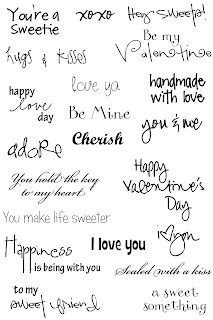 You're a
Sweetie
xoxo
Hey Sweets!
hugs & kisses
Be my
Valentine
happy
love
day
love ya
handmade
with love
Be Mine
you & me
Cherish
adore
Happy
Valentine's
Day
You hold the key
to my heart.
You make life sweeter
i ♥ you
Happiness
is being with you
I love you
Sealed with a kiss
to my
sweet friend
a sweet
something